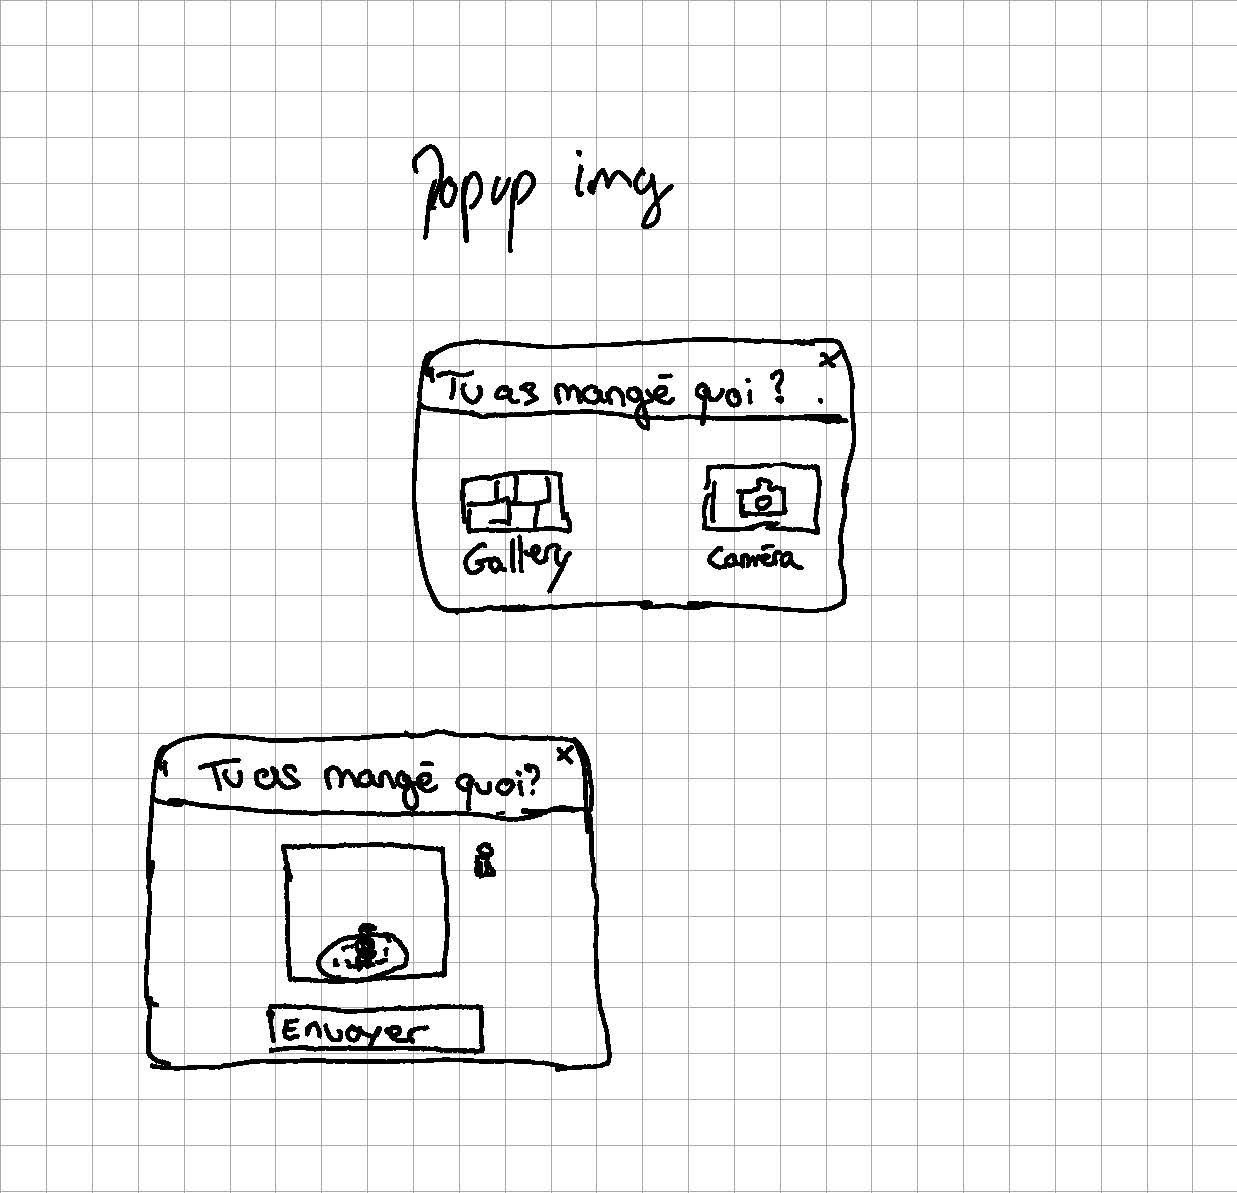 Popup img
Tu as mangé quoi ? x
Gallery
Caméra
Tu as mangé quoi? x
Envoyer